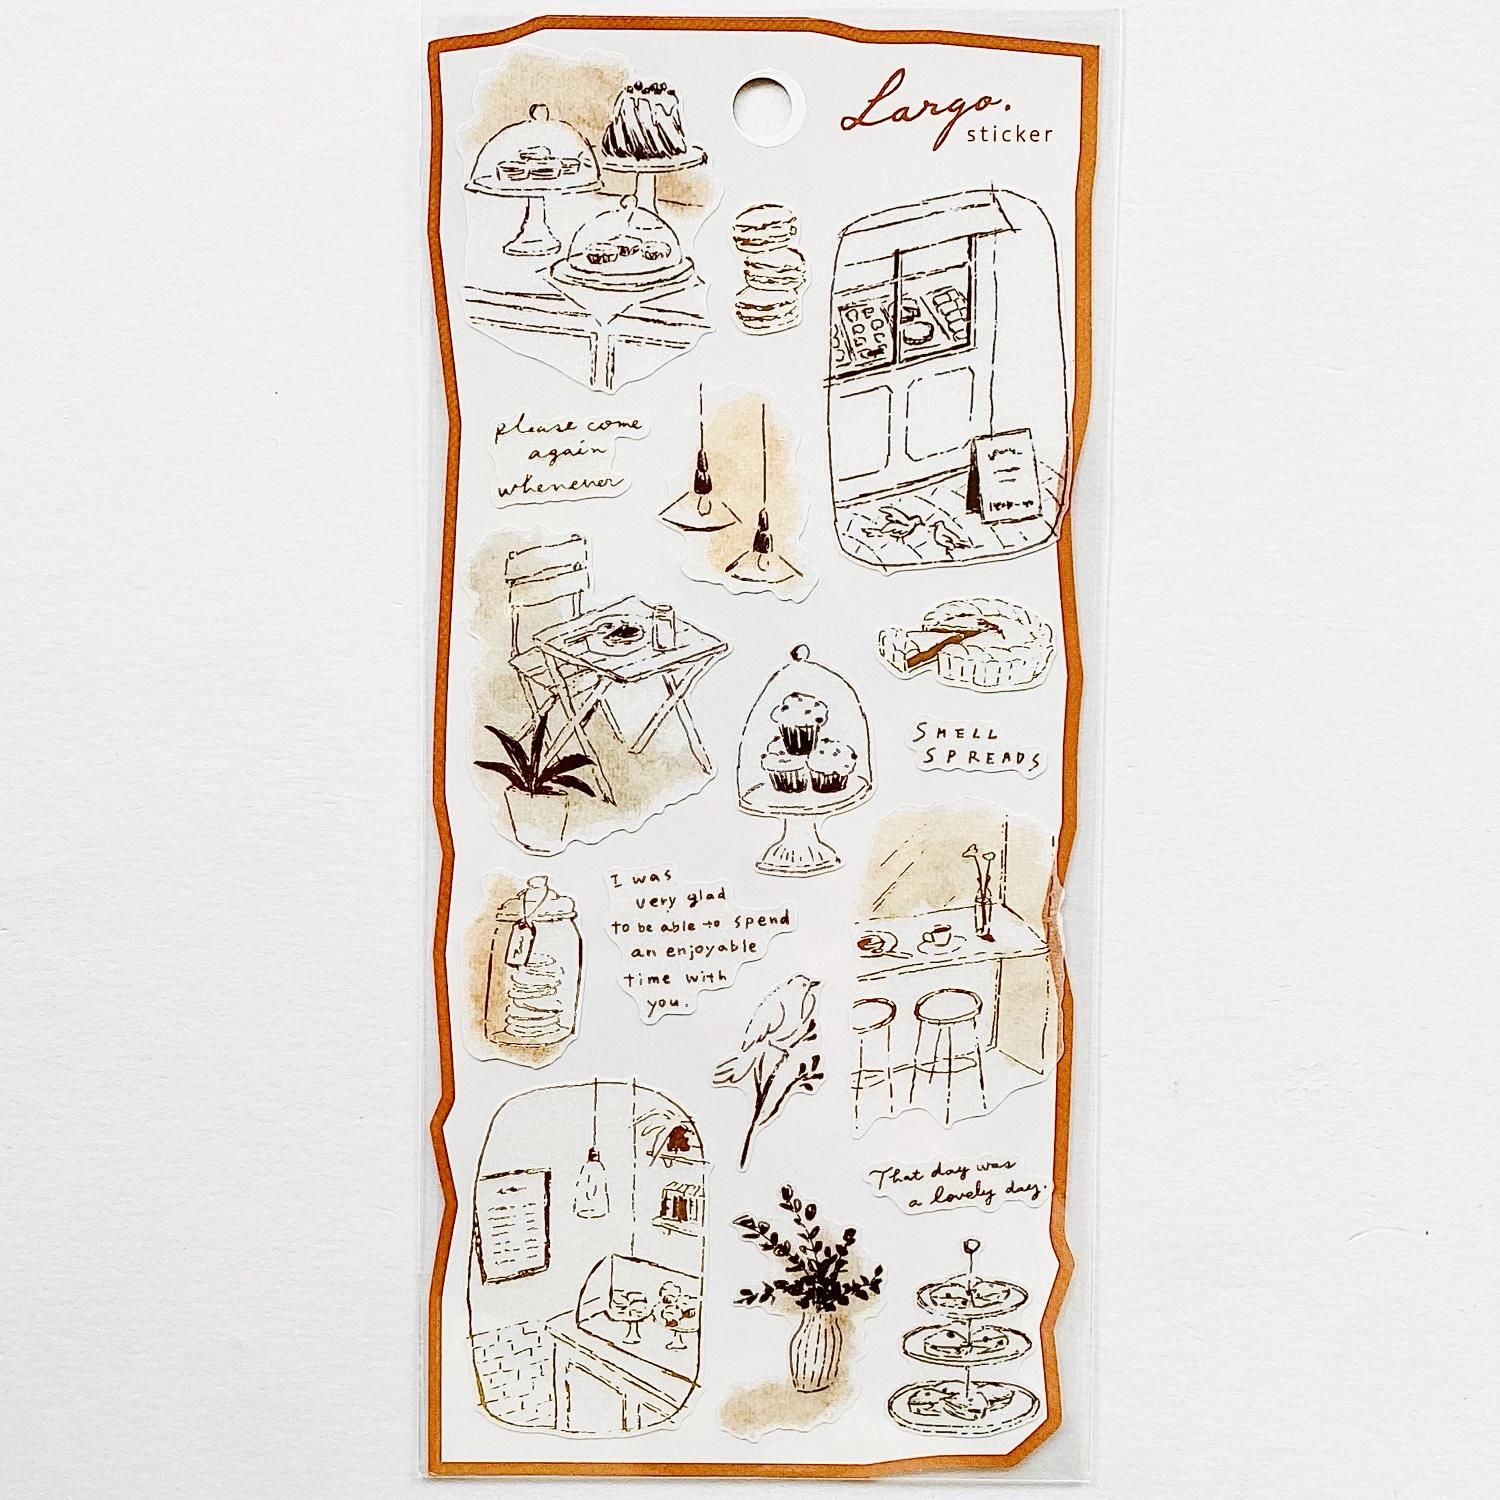 Largo.
sticker
please come
again
whenever
SMELL
SPREADS
I was
very glad
to be able to spend
an enjoyable
time with
you.
That day was
a lovely day.